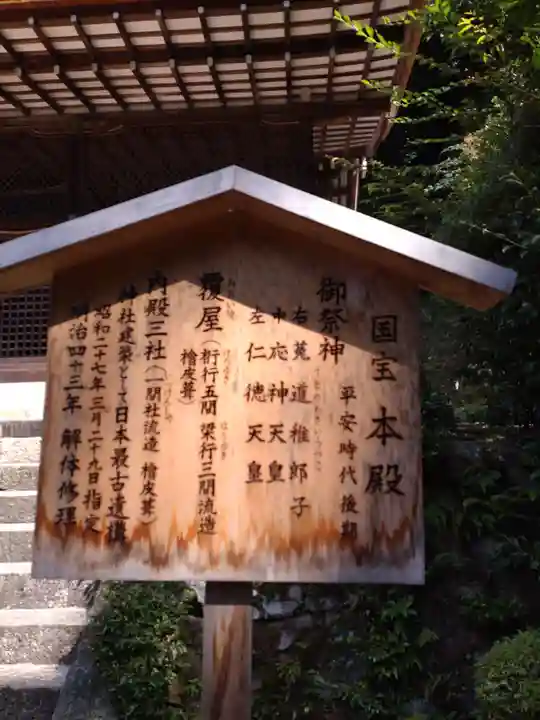 国宝 本殿
平安時代後期
御祭神
右 菟道稚郎子
中 応神天皇
左 仁徳天皇
覆屋（桁行五間 梁行三間流造
檜皮葺）
内殿三社（一間社流造 檜皮葺）
神社建築として日本最古遺構
昭和二十七年三月二十九日指定
明治四十三年 解体修理